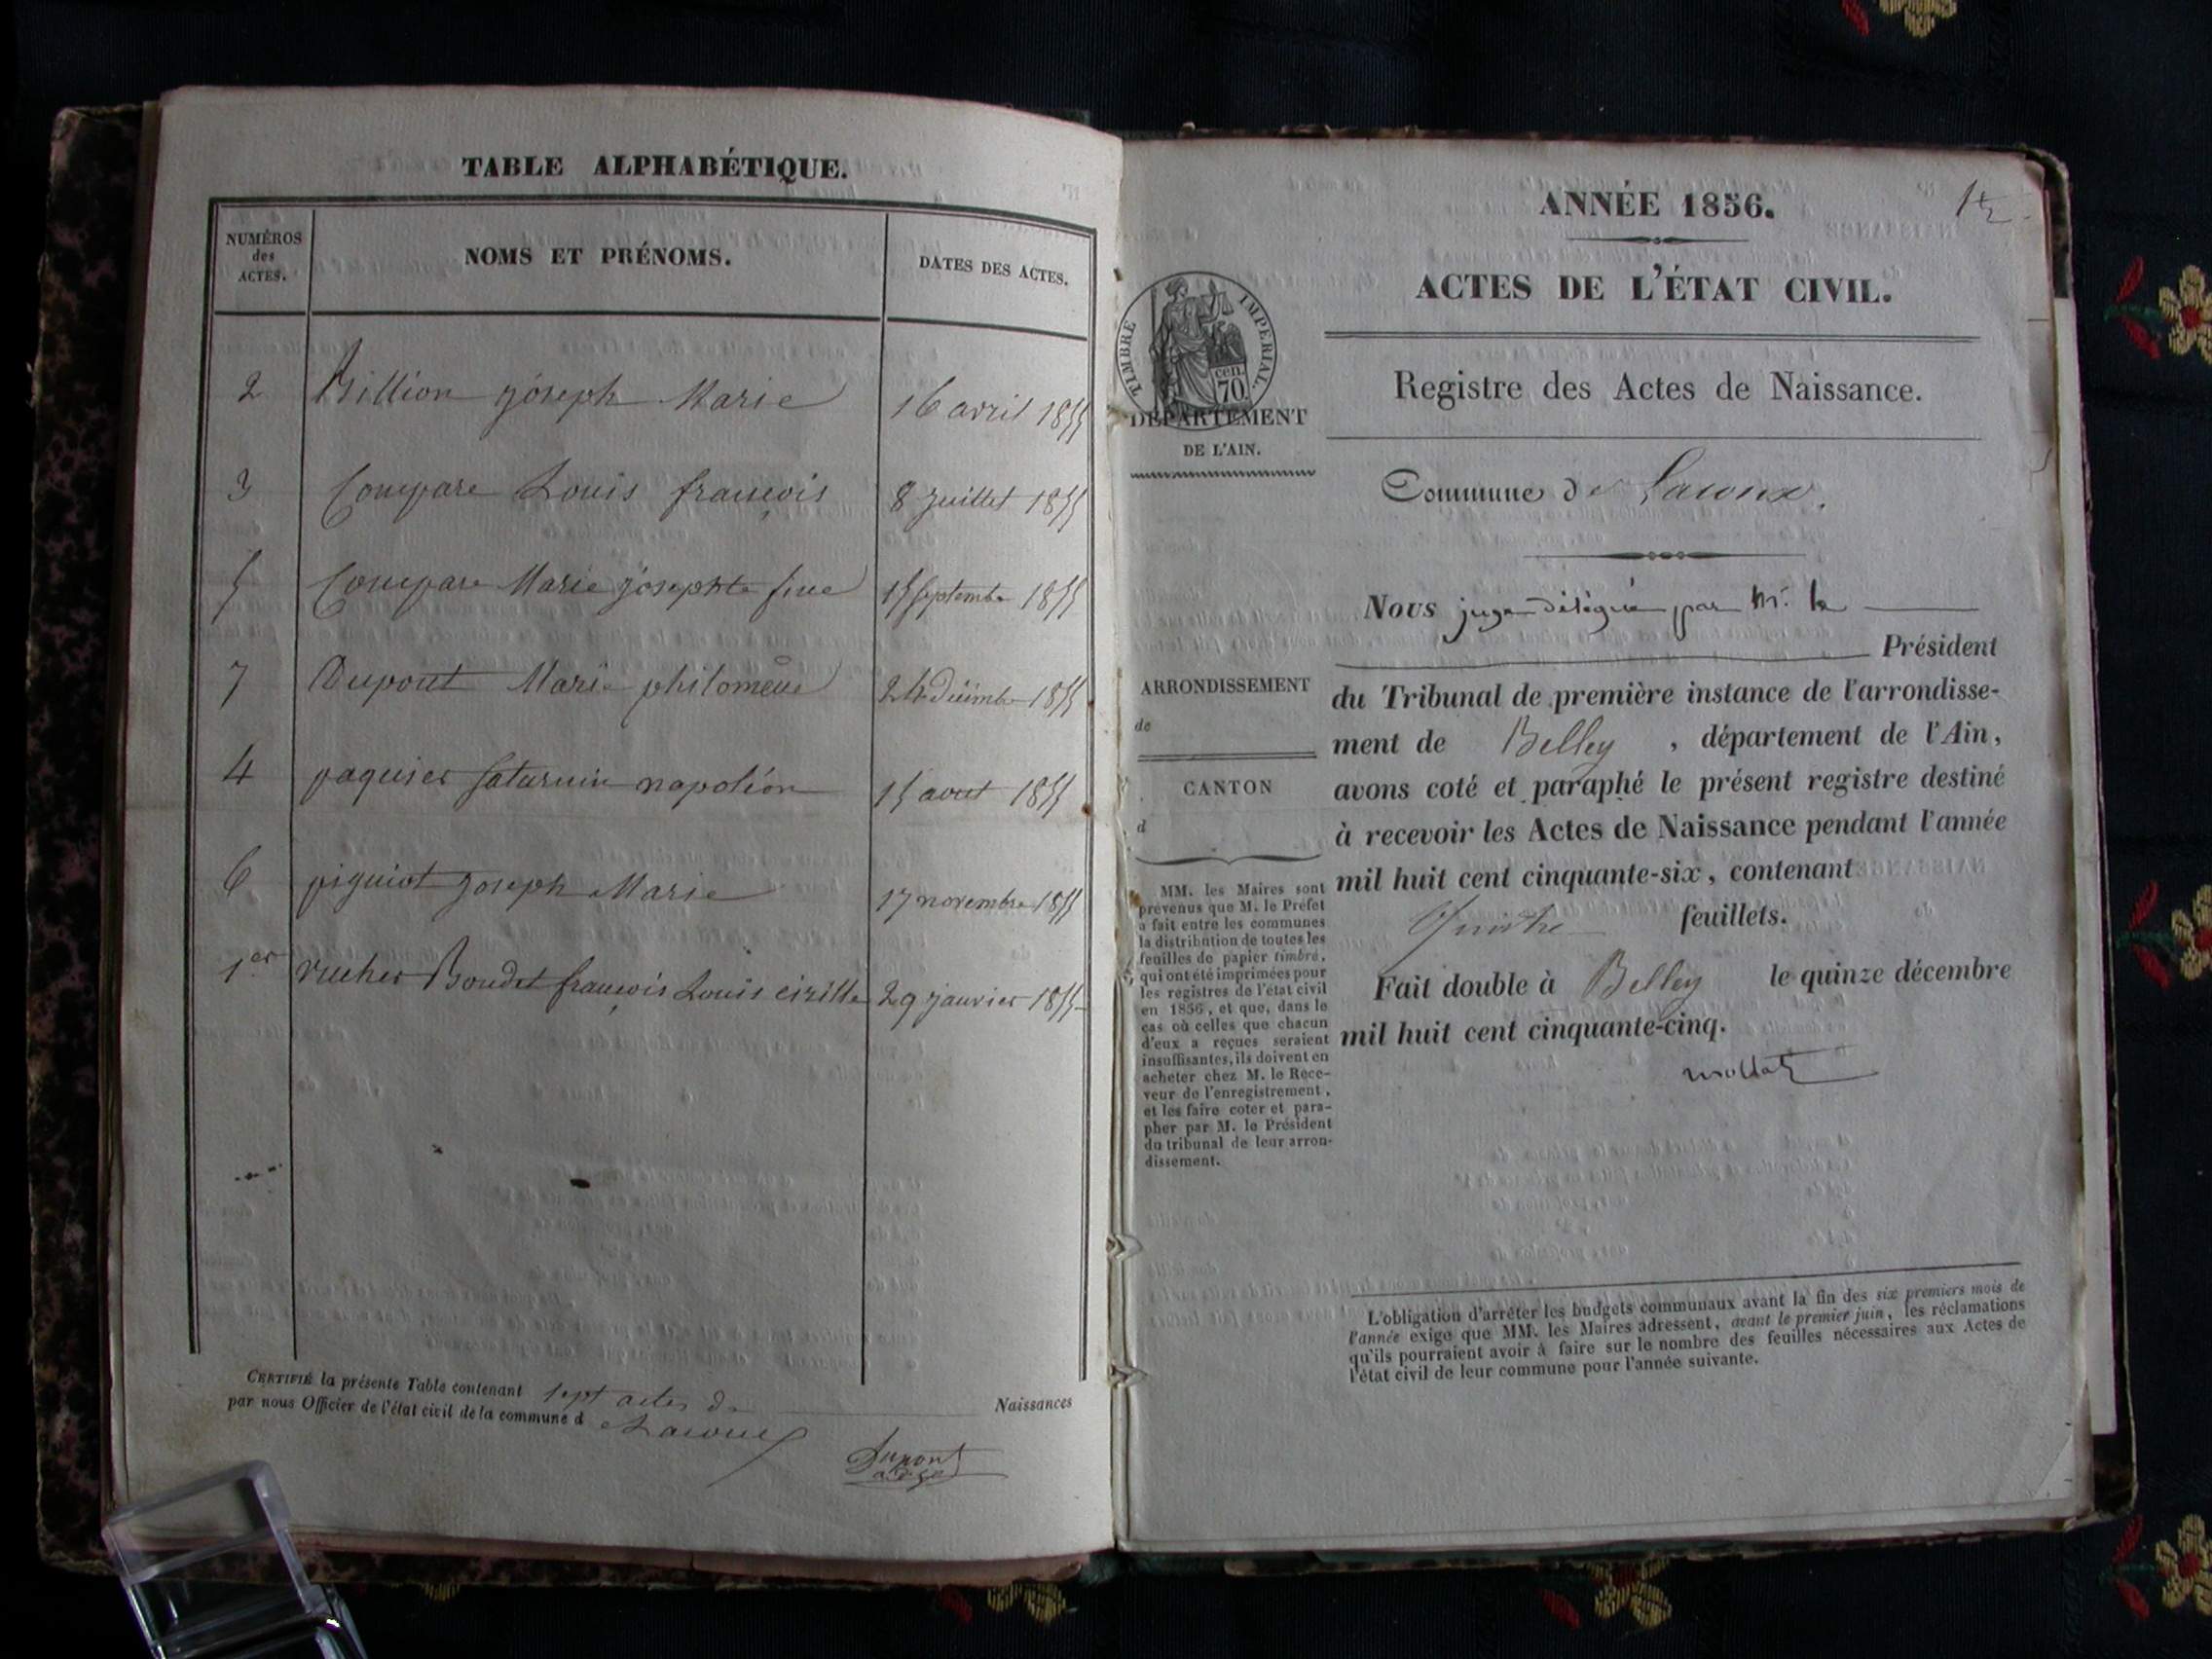 TABLE ALPHABÉTIQUE.
NUMÉROS
des
ACTES.
NOMS ET PRÉNOMS.
DATES DES ACTES.
2 Billion joseph Marie 16 avril 1855
3 Compare Louis françois 8 juillet 1855
5 Compare Marie josephte fine 15 septembre 1855
7 Dupont Marie philomène 24 décembre 1855
4 paquier saturnin napoléon 15 aout 1855
6 piguiot joseph Marie 17 novembre 1855
1er rucher Boudet françois Louis cirille 29 janvier 1855
CERTIFIÉ la présente Table contenant sept actes de Naissances
par nous Officier de l'état civil de la commune d e Lacoux
Dupont
adjt
ANNÉE 1856.
ACTES DE L'ÉTAT CIVIL.
TIMBRE IMPÉRIAL.
cen.
70
DÉPARTEMENT
DE L'AIN.
Registre des Actes de Naissance.
Commune de Lacoux.
Nous juge délégué par Mr. le
Président
du Tribunal de première instance de l'arrondisse-
ment de Belley, département de l'Ain,
avons coté et paraphé le présent registre destiné
à recevoir les Actes de Naissance pendant l'année
mil huit cent cinquante-six, contenant
feuillets.
Fait double à Belley le quinze décembre
mil huit cent cinquante-cinq.
ARRONDISSEMENT
de
CANTON
d
MM. les Maires sont
prévenus que M. le Préfet
a fait entre les communes
la distribution de toutes les
feuilles de papier timbré,
qui ont été imprimées pour
les registres de l'état civil
en 1856, et que, dans le
cas où celles que chacun
d'eux a reçues seraient
insuffisantes, ils doivent en
acheter chez M. le Rece-
veur de l'enregistrement,
et les faire coter et para-
pher par M. le Président
du tribunal de leur arron-
dissement.
L'obligation d'arrêter les budgets communaux avant la fin des six premiers mois de
l'année exige que MM. les Maires adressent, avant le premier juin, les réclamations
qu'ils pourraient avoir à faire sur le nombre des feuilles nécessaires aux Actes de
l'état civil de leur commune pour l'année suivante.